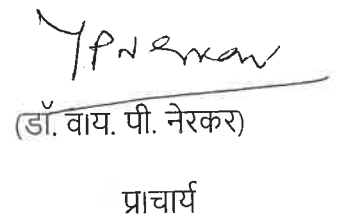 YPNerkar
(डॉ. वाय. पी. नेरकर)
प्राचार्य